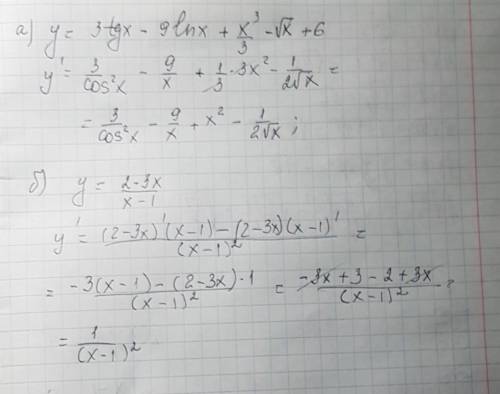 а) y = 3tgx - 9lnx + x³/3 - √x + 6
y' = 3/cos²x - 9/x + 1/3 · 3x² - 1/2√x =
= 3/cos²x - 9/x + x² - 1/2√x ;
б) y = 2-3x/x-1
y' = (2-3x)'(x-1) - (2-3x)(x-1)'/(x-1)² =
= -3(x-1) - (2-3x)·1/(x-1)² = -3x+3-2+3x/(x-1)² =
= 1/(x-1)²